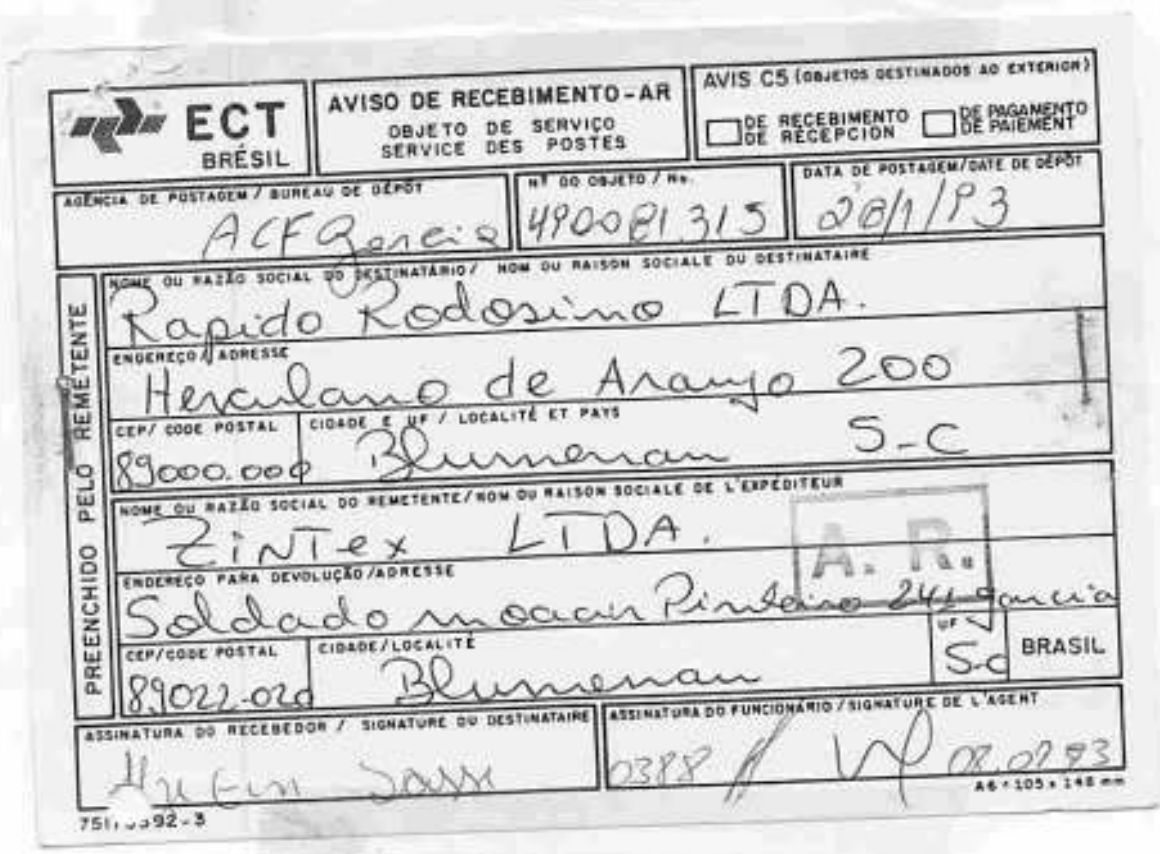 ECT
BRÉSIL
AVISO DE RECEBIMENTO-AR
OBJETO DE SERVIÇO
SERVICE DES POSTES
AVIS C5 (OBJETOS DESTINADOS AO EXTERIOR)
DE RECEBIMENTO
DE RÉCEPCION
DE PAGAMENTO
DE PAIEMENT
AGÊNCIA DE POSTAGEM / BUREAU DE DÉPÔT
ACF Garcia
Nº DO OBJETO / No.
490081315
DATA DE POSTAGEM/DATE DE DÉPÔT
28/1/93
PREENCHIDO PELO REMETENTE
NOME OU RAZÃO SOCIAL DO DESTINATÁRIO / NOM OU RAISON SOCIALE DU DESTINATAIRE
Rapido Rodosino LTDA.
ENDEREÇO / ADRESSE
Herculano de Araujo 200
CEP/ CODE POSTAL
89000.000
CIDADE E UF / LOCALITÉ ET PAYS
Blumenau S-C
NOME OU RAZÃO SOCIAL DO REMETENTE/NOM OU RAISON SOCIALE DE L'EXPÉDITEUR
ZiNTex LTDA.
A. R.
ENDEREÇO PARA DEVOLUÇÃO/ADRESSE
Soldado moacir Pinheiro 241 Garcia
CEP/CODE POSTAL
89022-020
CIDADE/LOCALITÉ
Blumenau
UF
S-C
BRASIL
ASSINATURA DO RECEBEDOR / SIGNATURE DU DESTINATAIRE
ASSINATURA DO FUNCIONÁRIO / SIGNATURE DE L'AGENT
0388
02.02.93
A6 - 105 x 148 mm